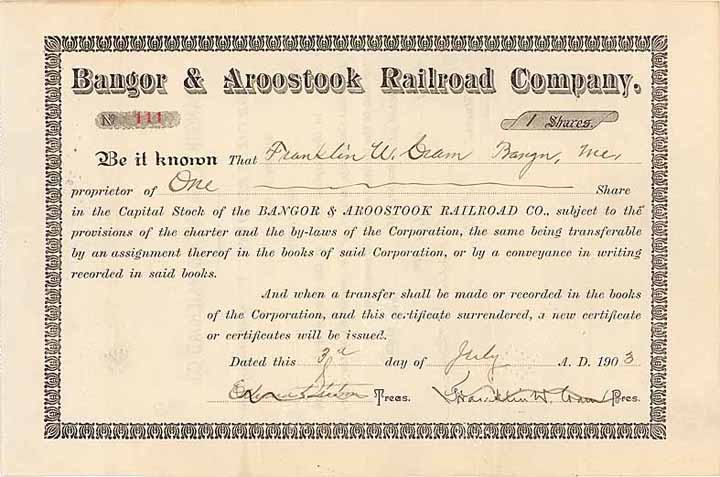 Bangor & Aroostook Railroad Company.
No 111
1 Shares.
Be it known That Franklin W. Cram Bangor, Me,
proprietor of One Share
in the Capital Stock of the BANGOR & AROOSTOOK RAILROAD CO., subject to the
provisions of the charter and the by-laws of the Corporation, the same being transferable
by an assignment thereof in the books of said Corporation, or by a conveyance in writing
recorded in said books.
And when a transfer shall be made or recorded in the books
of the Corporation, and this certificate surrendered, a new certificate
or certificates will be issued.
Dated this 3rd day of July A. D. 1903
Treas. Franklin W. Cram Pres.